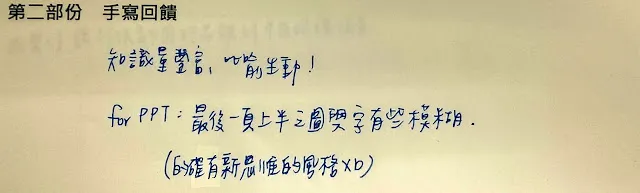 第二部份 手寫回饋
知識量豐富, 比喻生動!
for PPT: 最後一頁上半之圖與字有些模糊.
(的確有新思維的風格XD)